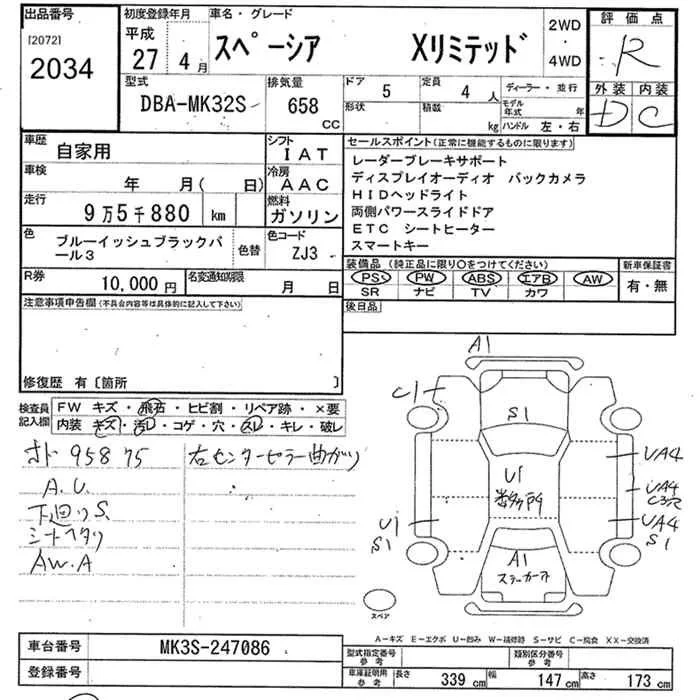 出品番号
[2072]
2034
初度登録年月
平成
27 4 月
車名・グレード
スペーシア Xリミテッド
2WD
・
4WD
評価点
R
外装 内装
D C
型式
DBA-MK32S
排気量
658 CC
ドア 5
形状
定員 4 人
積載 kg
ディーラー・並行
モデル年式 年
ハンドル 左・右
車歴
自家用
シフト
IAT
車検
年 月( 日)
冷房
AAC
走行
9万5千880 km
燃料
ガソリン
色
ブルーイッシュブラックパール3
色替
色コード
ZJ3
R券
10,000 円
名変通知期限
月 日
セールスポイント(正常に機能するものに限ります)
レーダーブレーキサポート
ディスプレイオーディオ バックカメラ
HIDヘッドライト
両側パワースライドドア
ETC シートヒーター
スマートキー
装備品(純正品に限り○をつけてください)
PS PW ABS エアB AW
SR ナビ TV カワ
新車保証書
有・無
後日品
注意事項申告欄(不具合内容等は具体的に記入して下さい)
修復歴 有〔箇所 〕
検査員記入欄
FW キズ・飛石・ヒビ割・リペア跡・×要
内装 キズ・汚レ・コゲ・穴・スレ・キレ・破レ
95875 右センターピラー曲がり
A.U.
下廻りS
シートヘタリ
AW.A
A1
C1
S1
U1
UA4
UA4
C3穴
UA4
S1
U1
S1
A1
スペア
A−キズ E−エクボ U−凹み W−補修跡 S−サビ C−腐食 XX−交換済
車台番号
MK3S-247086
登録番号
型式指定番号 参考
類別区分番号 参考
車庫証明用 参考
長さ 339 cm
幅 147 cm
高さ 173 cm